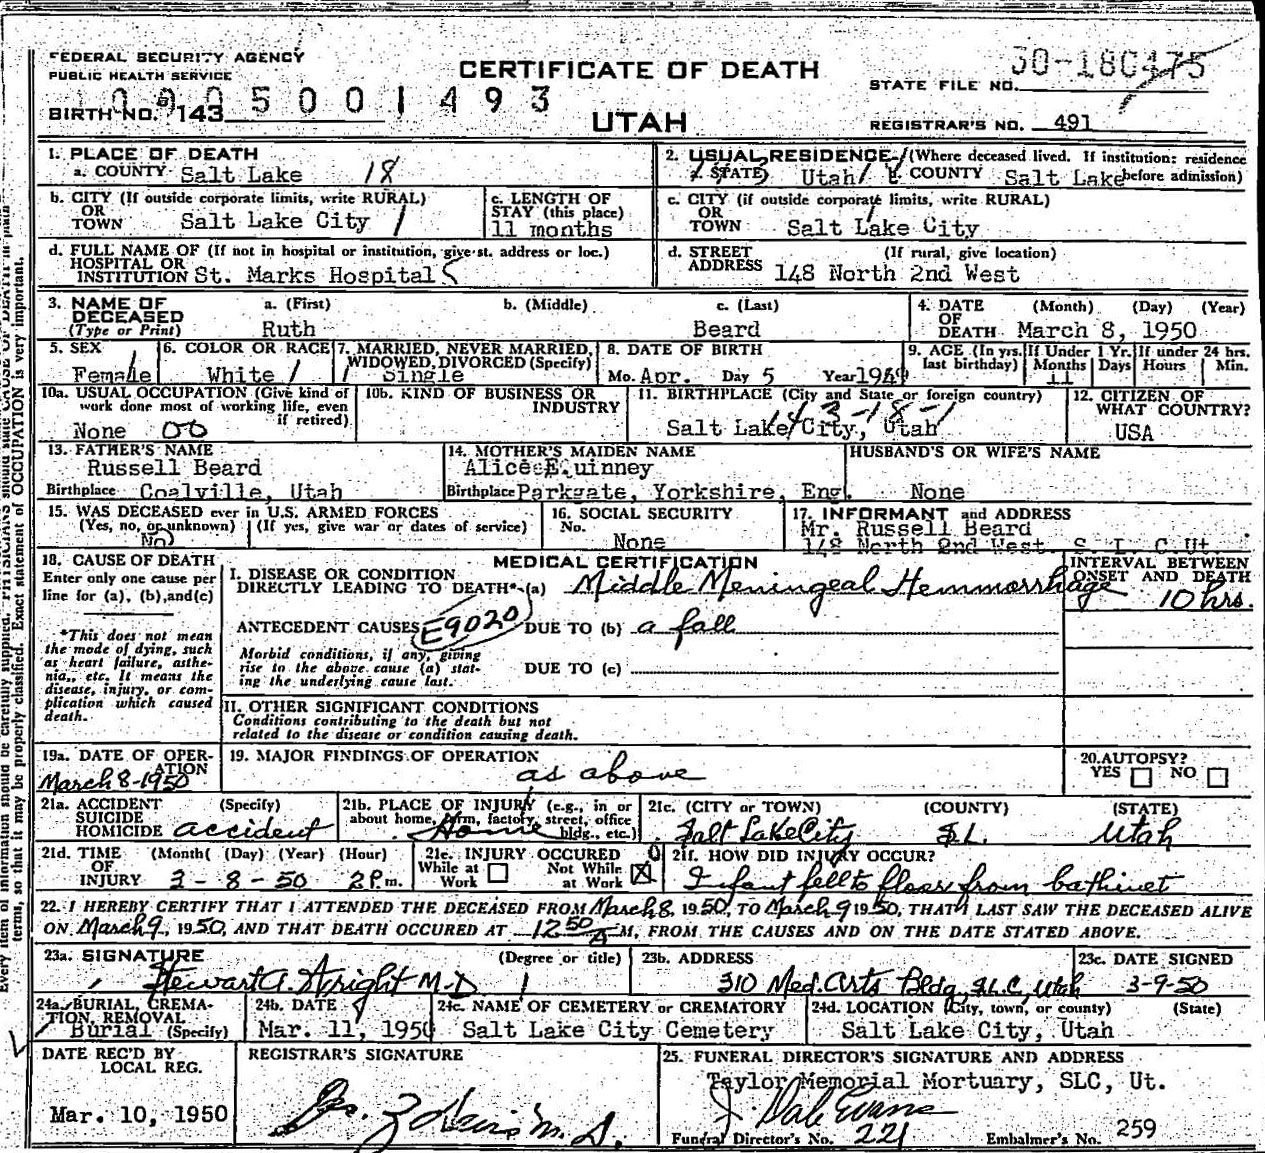 FEDERAL SECURITY AGENCY
PUBLIC HEALTH SERVICE
CERTIFICATE OF DEATH
UTAH
STATE FILE NO.
BIRTH NO. 143
REGISTRAR'S NO. 491
1. PLACE OF DEATH
a. COUNTY Salt Lake 18
2. USUAL RESIDENCE (Where deceased lived. If institution: residence before admission)
STATE Utah COUNTY Salt Lake
b. CITY (If outside corporate limits, write RURAL)
OR
TOWN Salt Lake City
c. LENGTH OF
STAY (this place)
11 months
c. CITY (if outside corporate limits, write RURAL)
OR
TOWN Salt Lake City
d. FULL NAME OF (If not in hospital or institution, give st. address or loc.)
HOSPITAL OR
INSTITUTION St. Marks Hospital
d. STREET (If rural, give location)
ADDRESS 148 North 2nd West
3. NAME OF DECEASED a. (First) b. (Middle) c. (Last)
(Type or Print) Ruth Beard
4. DATE OF DEATH (Month) (Day) (Year)
March 8, 1950
5. SEX
Female
6. COLOR OR RACE
White
7. MARRIED, NEVER MARRIED,
WIDOWED, DIVORCED (Specify)
Single
8. DATE OF BIRTH
Mo. Apr. Day 5 Year 1949
9. AGE (In yrs. last birthday) If Under 1 Yr. If under 24 hrs.
Months Days Hours Min.
11
10a. USUAL OCCUPATION (Give kind of
work done most of working life, even
if retired)
None 00
10b. KIND OF BUSINESS OR
INDUSTRY
11. BIRTHPLACE (City and State or foreign country)
43-18-1
Salt Lake City, Utah
12. CITIZEN OF
WHAT COUNTRY?
USA
13. FATHER'S NAME
Russell Beard
Birthplace Coalville, Utah
14. MOTHER'S MAIDEN NAME
Alice E. Quinney
Birthplace Parkgate, Yorkshire, Eng.
HUSBAND'S OR WIFE'S NAME
None
15. WAS DECEASED ever in U.S. ARMED FORCES
(Yes, no, or unknown) (If yes, give war or dates of service)
No
16. SOCIAL SECURITY
No.
None
17. INFORMANT and ADDRESS
Mr. Russell Beard
148 North 2nd West S. L. C. Ut.
18. CAUSE OF DEATH
Enter only one cause per
line for (a), (b), and (c)
*This does not mean
the mode of dying, such
as heart failure, asthe-
nia, etc. It means the
disease, injury, or com-
plication which caused
death.
MEDICAL CERTIFICATION
INTERVAL BETWEEN
ONSET AND DEATH
I. DISEASE OR CONDITION
DIRECTLY LEADING TO DEATH* (a) Middle Meningeal Hemmorrhage 10 hrs.
ANTECEDENT CAUSES E9020 DUE TO (b) a fall
Morbid conditions, if any, giving
rise to the above cause (a) stat-
ing the underlying cause last.
DUE TO (c)
II. OTHER SIGNIFICANT CONDITIONS
Conditions contributing to the death but not
related to the disease or condition causing death.
19a. DATE OF OPER-
ATION
March 8-1950
19. MAJOR FINDINGS OF OPERATION
as above
20. AUTOPSY?
YES NO
21a. ACCIDENT (Specify)
SUICIDE
HOMICIDE accident
21b. PLACE OF INJURY (e.g., in or
about home, farm, factory, street, office
bldg., etc.)
Home
21c. (CITY or TOWN) (COUNTY) (STATE)
Salt Lake City S.L. Utah
21d. TIME (Month) (Day) (Year) (Hour)
OF
INJURY 3-8-50 2 P.m.
21e. INJURY OCCURED
While at Work Not While at Work
21f. HOW DID INJURY OCCUR?
Infant fell to floor from bathinet
22. I HEREBY CERTIFY THAT I ATTENDED THE DECEASED FROM March 8, 1950, TO March 9 1950, THAT I LAST SAW THE DECEASED ALIVE
ON March 9, 1950, AND THAT DEATH OCCURED AT 12 50 A M, FROM THE CAUSES AND ON THE DATE STATED ABOVE.
23a. SIGNATURE (Degree or title)
Stewart A. Wright M-D
23b. ADDRESS
310 Med. Arts Bldg. S.L.C, Utah
23c. DATE SIGNED
3-9-50
24a. BURIAL, CREMA-
TION, REMOVAL
Burial (Specify)
24b. DATE
Mar. 11, 1950
24c. NAME OF CEMETERY or CREMATORY
Salt Lake City Cemetery
24d. LOCATION (City, town, or county) (State)
Salt Lake City, Utah
DATE REC'D BY
LOCAL REG.
Mar. 10, 1950
REGISTRAR'S SIGNATURE
25. FUNERAL DIRECTOR'S SIGNATURE AND ADDRESS
Taylor Memorial Mortuary, SLC, Ut.
J. Dale Evans
Funeral Director's No. 221 Embalmer's No. 259